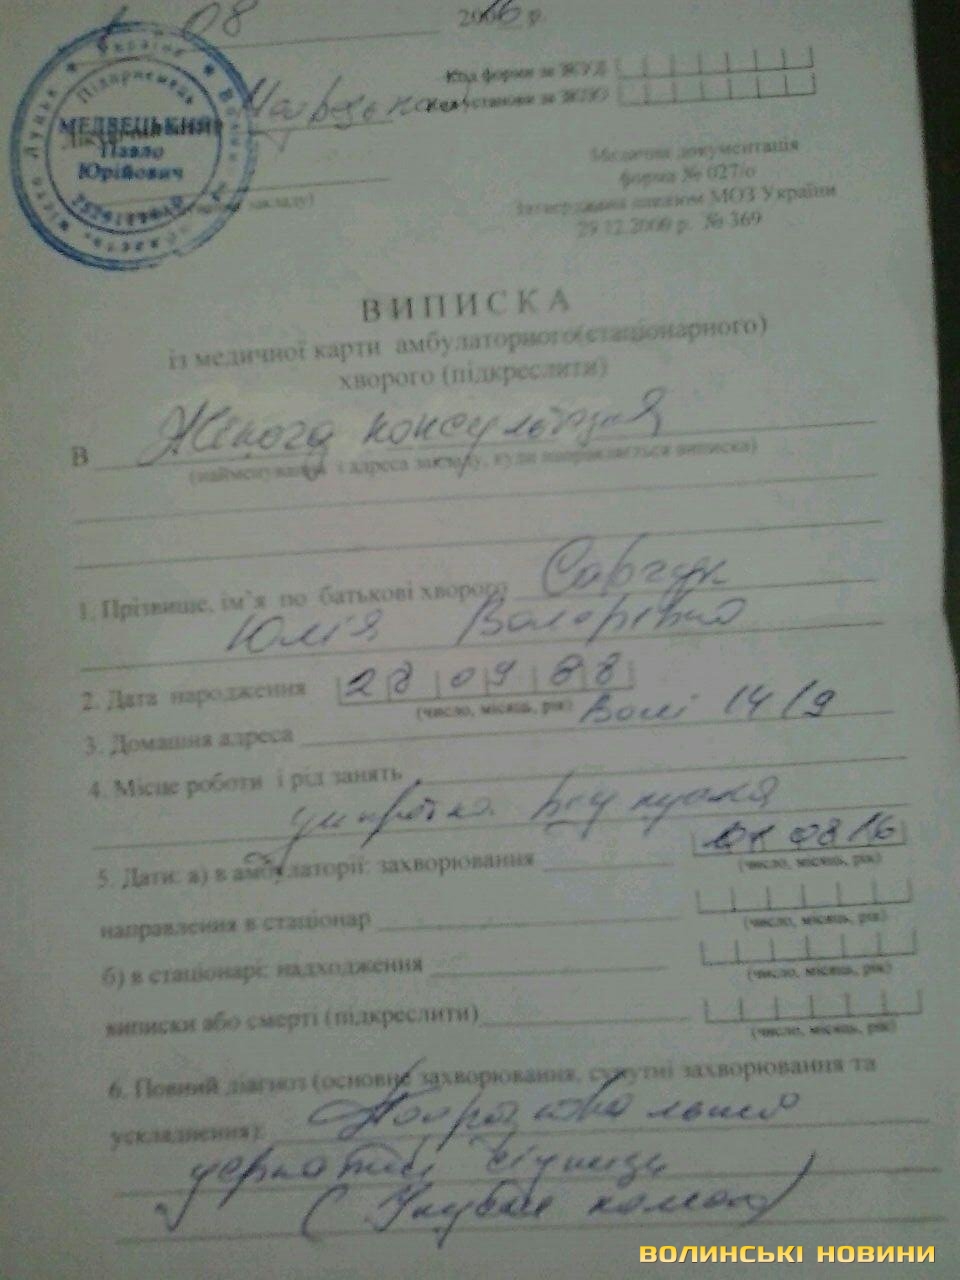 08 2016 р.
Код форми за ЗКУД
Код установи за ЗКПО
Україна
Підприємець
МЕДВЕЦЬКИЙ
Павло
Юрійович
місто Луцьк
закладу)
Медична документація
форма № 027/о
Затверджена наказом МОЗ України
29.12.2000 р. № 369
ВИПИСКА
із медичної карти амбулаторного(стаціонарного)
хворого (підкреслити)
В Жіноча консультація
(найменування і адреса закладу, куди направляється виписка)
1. Прізвище, ім`я по батькові хворого Савчук
Юлія Валеріївна
2. Дата народження 28 09 88
(число, місяць, рік)
3. Домашня адреса Волі 14/9
4. Місце роботи і рід занять
5. Дати: а) в амбулаторії: захворювання 01 08 16
(число, місяць, рік)
направлення в стаціонар
(число, місяць, рік)
б) в стаціонарі: надходження
(число, місяць, рік)
виписки або смерті (підкреслити)
(число, місяць, рік)
6. Повний діагноз (основне захворювання, супутні захворювання та
ускладнення):
дерматит
(Укуси комах)
ВОЛИНСЬКІ НОВИНИ